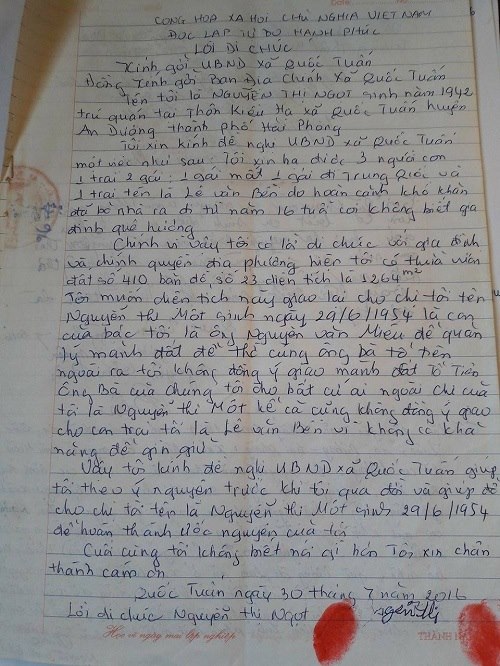 CỘNG HÒA XÃ HỘI CHỦ NGHĨA VIỆT NAM
ĐỘC LẬP TỰ DO HẠNH PHÚC
LỜI DI CHÚC
Kính gởi UBND Xã Quốc Tuấn
Đồng kính gởi Ban Địa Chính Xã Quốc Tuấn
Tên tôi là NGUYỄN THỊ NGỌT sinh năm 1942
trú quán tại Thôn Kiều Hạ xã Quốc Tuấn huyện
An Dương thành phố Hải Phòng
Tôi xin kính đề nghị UBND xã Quốc Tuấn
một việc như sau: Tôi sinh hạ được 3 người con
1 trai 2 gái: 1 gái mất 1 gái đi Trung Quốc và
1 trai tên là Lê văn Bền do hoàn cảnh khó khăn
đã bỏ nhà ra đi từ năm 16 tuổi coi không biết gia
đình quê hương
Chính vì vậy tôi có lời di chúc với gia đình
và chính quyền địa phương hiện tôi có thửa vườn
đất số 410 bản đồ số 23 diện tích là 1264m2
Tôi muốn diện tích này giao lại cho chị tôi tên
Nguyễn thị Một sinh ngày 29/6/1954 là con
của bác tôi là ông Nguyễn văn Miều để quản
lý mảnh đất để thờ cúng ông bà tổ tiên
ngoài ra tôi không đồng ý giao mảnh đất Tổ Tiên
Ông Bà của chúng tôi cho bất cứ ai ngoài chị của
tôi là Nguyễn thị Một kể cả cũng không đồng ý giao
cho con trai tôi là Lê văn Bền vì không có khả
năng để gìn giữ
Vậy tôi kính đề nghị UBND xã Quốc Tuấn giúp
tôi theo ý nguyện trước khi tôi qua đời và giúp đỡ
cho chị tôi tên là Nguyễn thị Một sinh 29/6/1954
để hoàn thành ước nguyện của tôi
Cuối cùng tôi không biết nói gì hơn Tôi xin chân
thành cảm ơn
Quốc Tuấn ngày 30 tháng 7 năm 2016
Lời di chúc Nguyễn thị Ngọt
Học vì ngày mai lập nghiệp